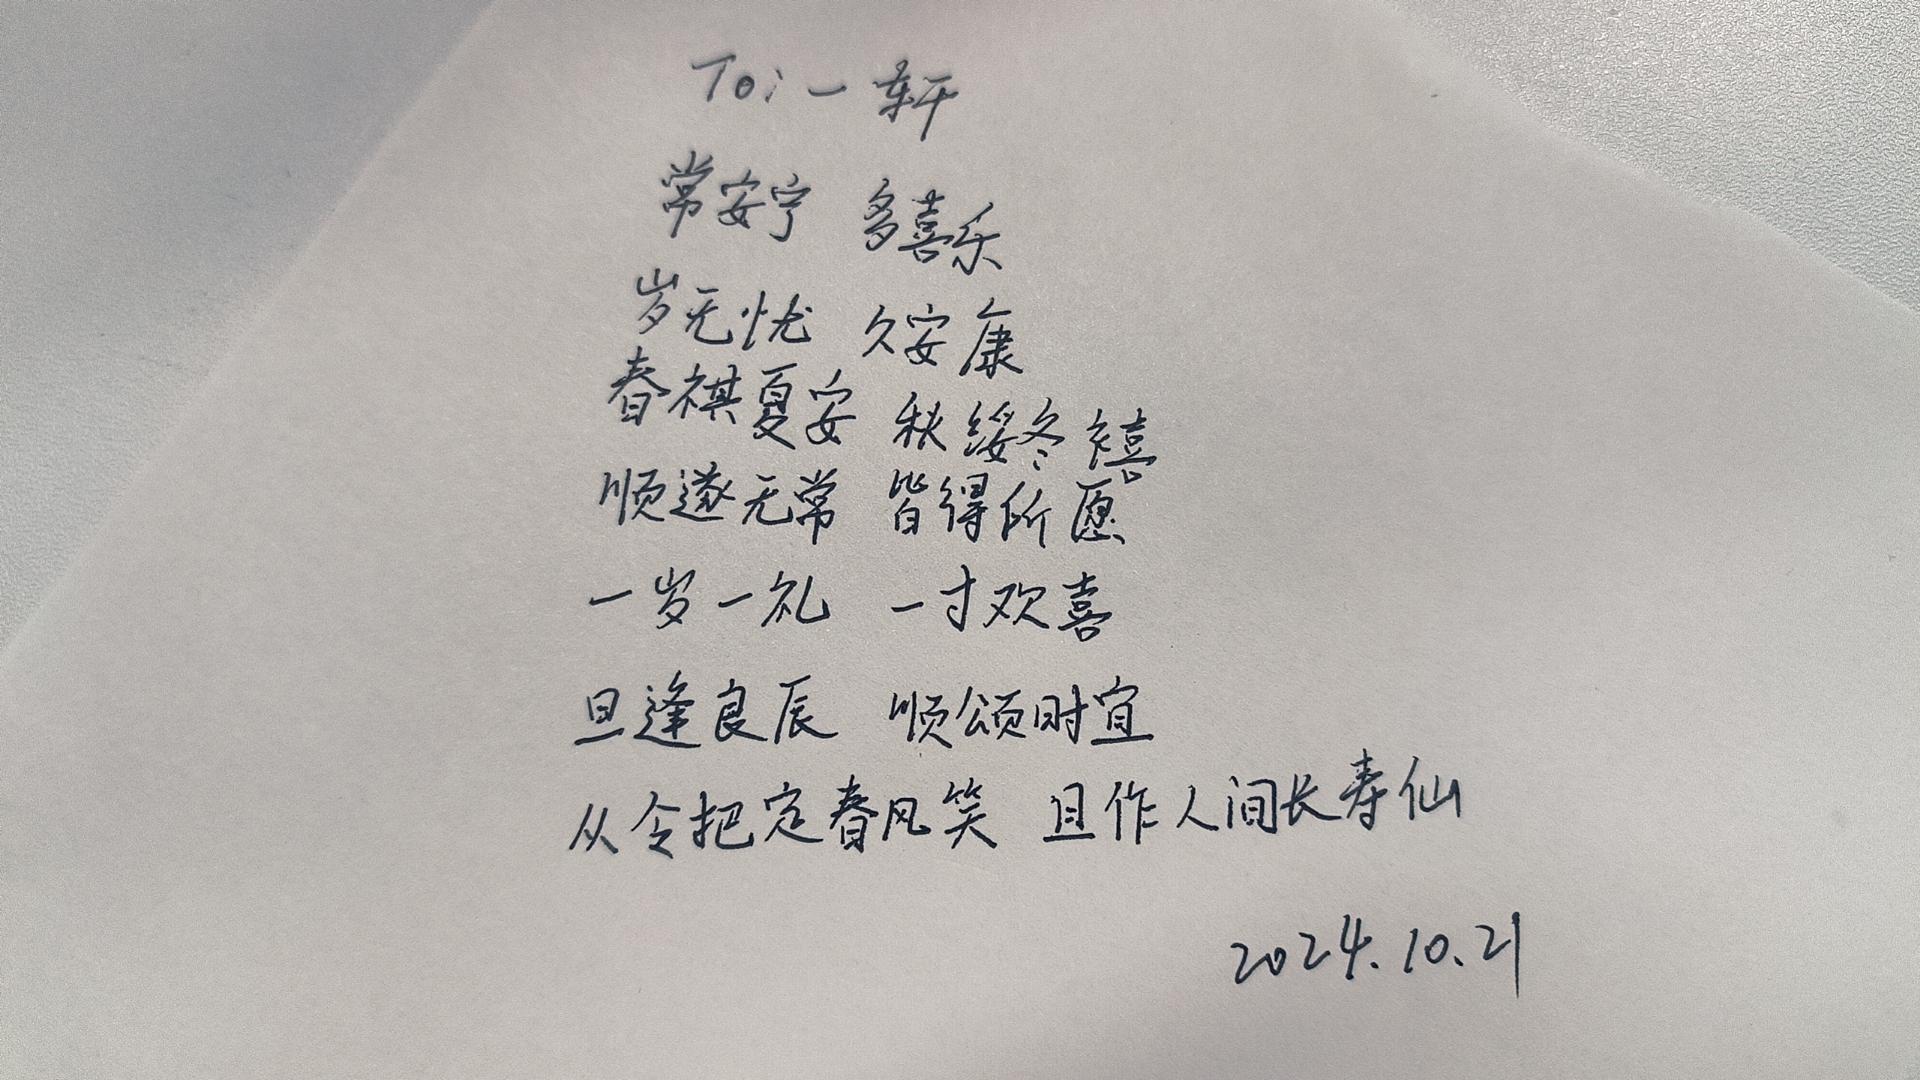 To:一轩
常安宁 多喜乐
岁无忧 久安康
春祺夏安 秋绥冬禧
顺遂无常 皆得所愿
一岁一礼 一寸欢喜
旦逢良辰 顺颂时宜
从令把定春风笑 且作人间长寿仙
2024.10.21